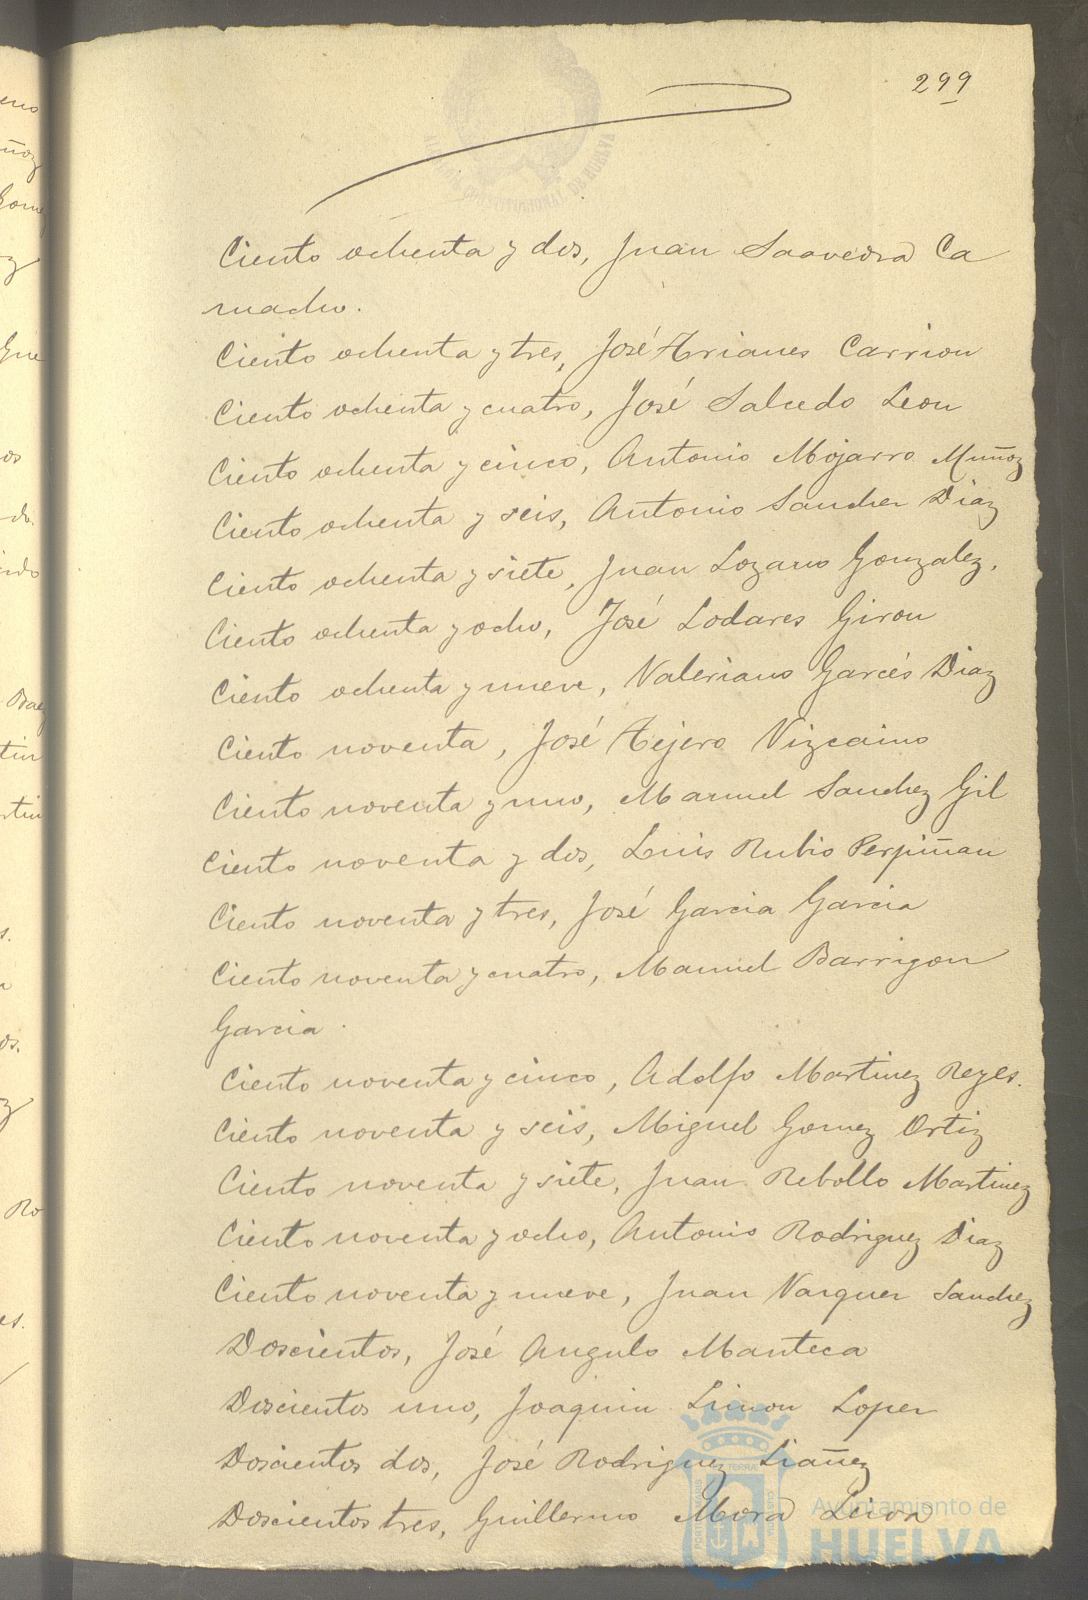 299
Ciento ochenta y dos, Juan Saavedra Ca
macho.
Ciento ochenta y tres, José Arianes Carrion
Ciento ochenta y cuatro, José Salcedo Leon
Ciento ochenta y cinco, Antonio Mojarro Muñoz
Ciento ochenta y seis, Antonio Sancher Diaz
Ciento ochenta y siete, Juan Lozano Gonzalez.
Ciento ochenta y ocho, José Lodares Giron
Ciento ochenta y nueve, Valeriano Garcés Diaz
Ciento noventa, José Tejero Vizcaino
Ciento noventa y uno, Manuel Sanchez Gil
Ciento noventa y dos, Luis Rubio Perpiñan
Ciento noventa y tres, José Garcia Garcia
Ciento noventa y cuatro, Manuel Barrigon
Garcia.
Ciento noventa y cinco, Adolfo Martinez Reyes.
Ciento noventa y seis, Miguel Gomez Ortiz
Ciento noventa y siete, Juan Rebollo Martinez
Ciento noventa y ocho, Antonio Rodriguez Diaz
Ciento noventa y nueve, Juan Varquer Sanchez
Doscientos, José Angulo Manteca
Doscientos uno, Joaquin Limon Loper
Doscientos dos, José Rodriguez Liañez
Doscientos tres, Guillermo Mora Leiva
Ayuntamiento de
HUELVA